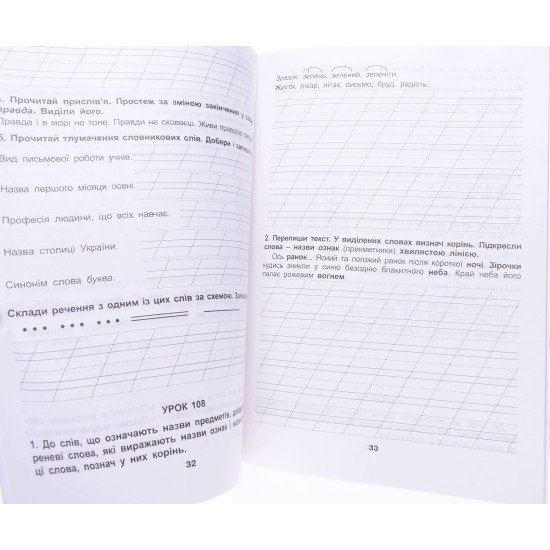 Прочитай прислів'я. Простеж за зміною закінчення у
правда. Виділи його.
Правда і в морі не тоне. Правди не сховаєш. Живи правдою
Прочитай тлумачення словникових слів. Добери і запиши
Вид письмової роботи учнів.
Назва першого місяця осені.
Професія людини, що всіх навчає.
Назва столиці України.
Синонім слова буква.
Склади речення з одним із цих слів за схемою.
УРОК 108
1. До слів, що означають назви предметів,
реневі слова, які виражають назви ознак і
ці слова, познач у них корінь.
32
Зразок: зелень, зелений, зеленіти.
Життя, лікар, літак, письмо, бруд, радість.
2. Перепиши текст. У виділених словах визнач корінь. Підкресли
слова – назви ознак (прикметники) хвилястою лінією.
Ось ранок... Ясний та погожий ранок після короткої ночі. Зірочки
кудись зникли у синю безодню блакитного неба. Край неба його
палає рожевим вогнем.
33